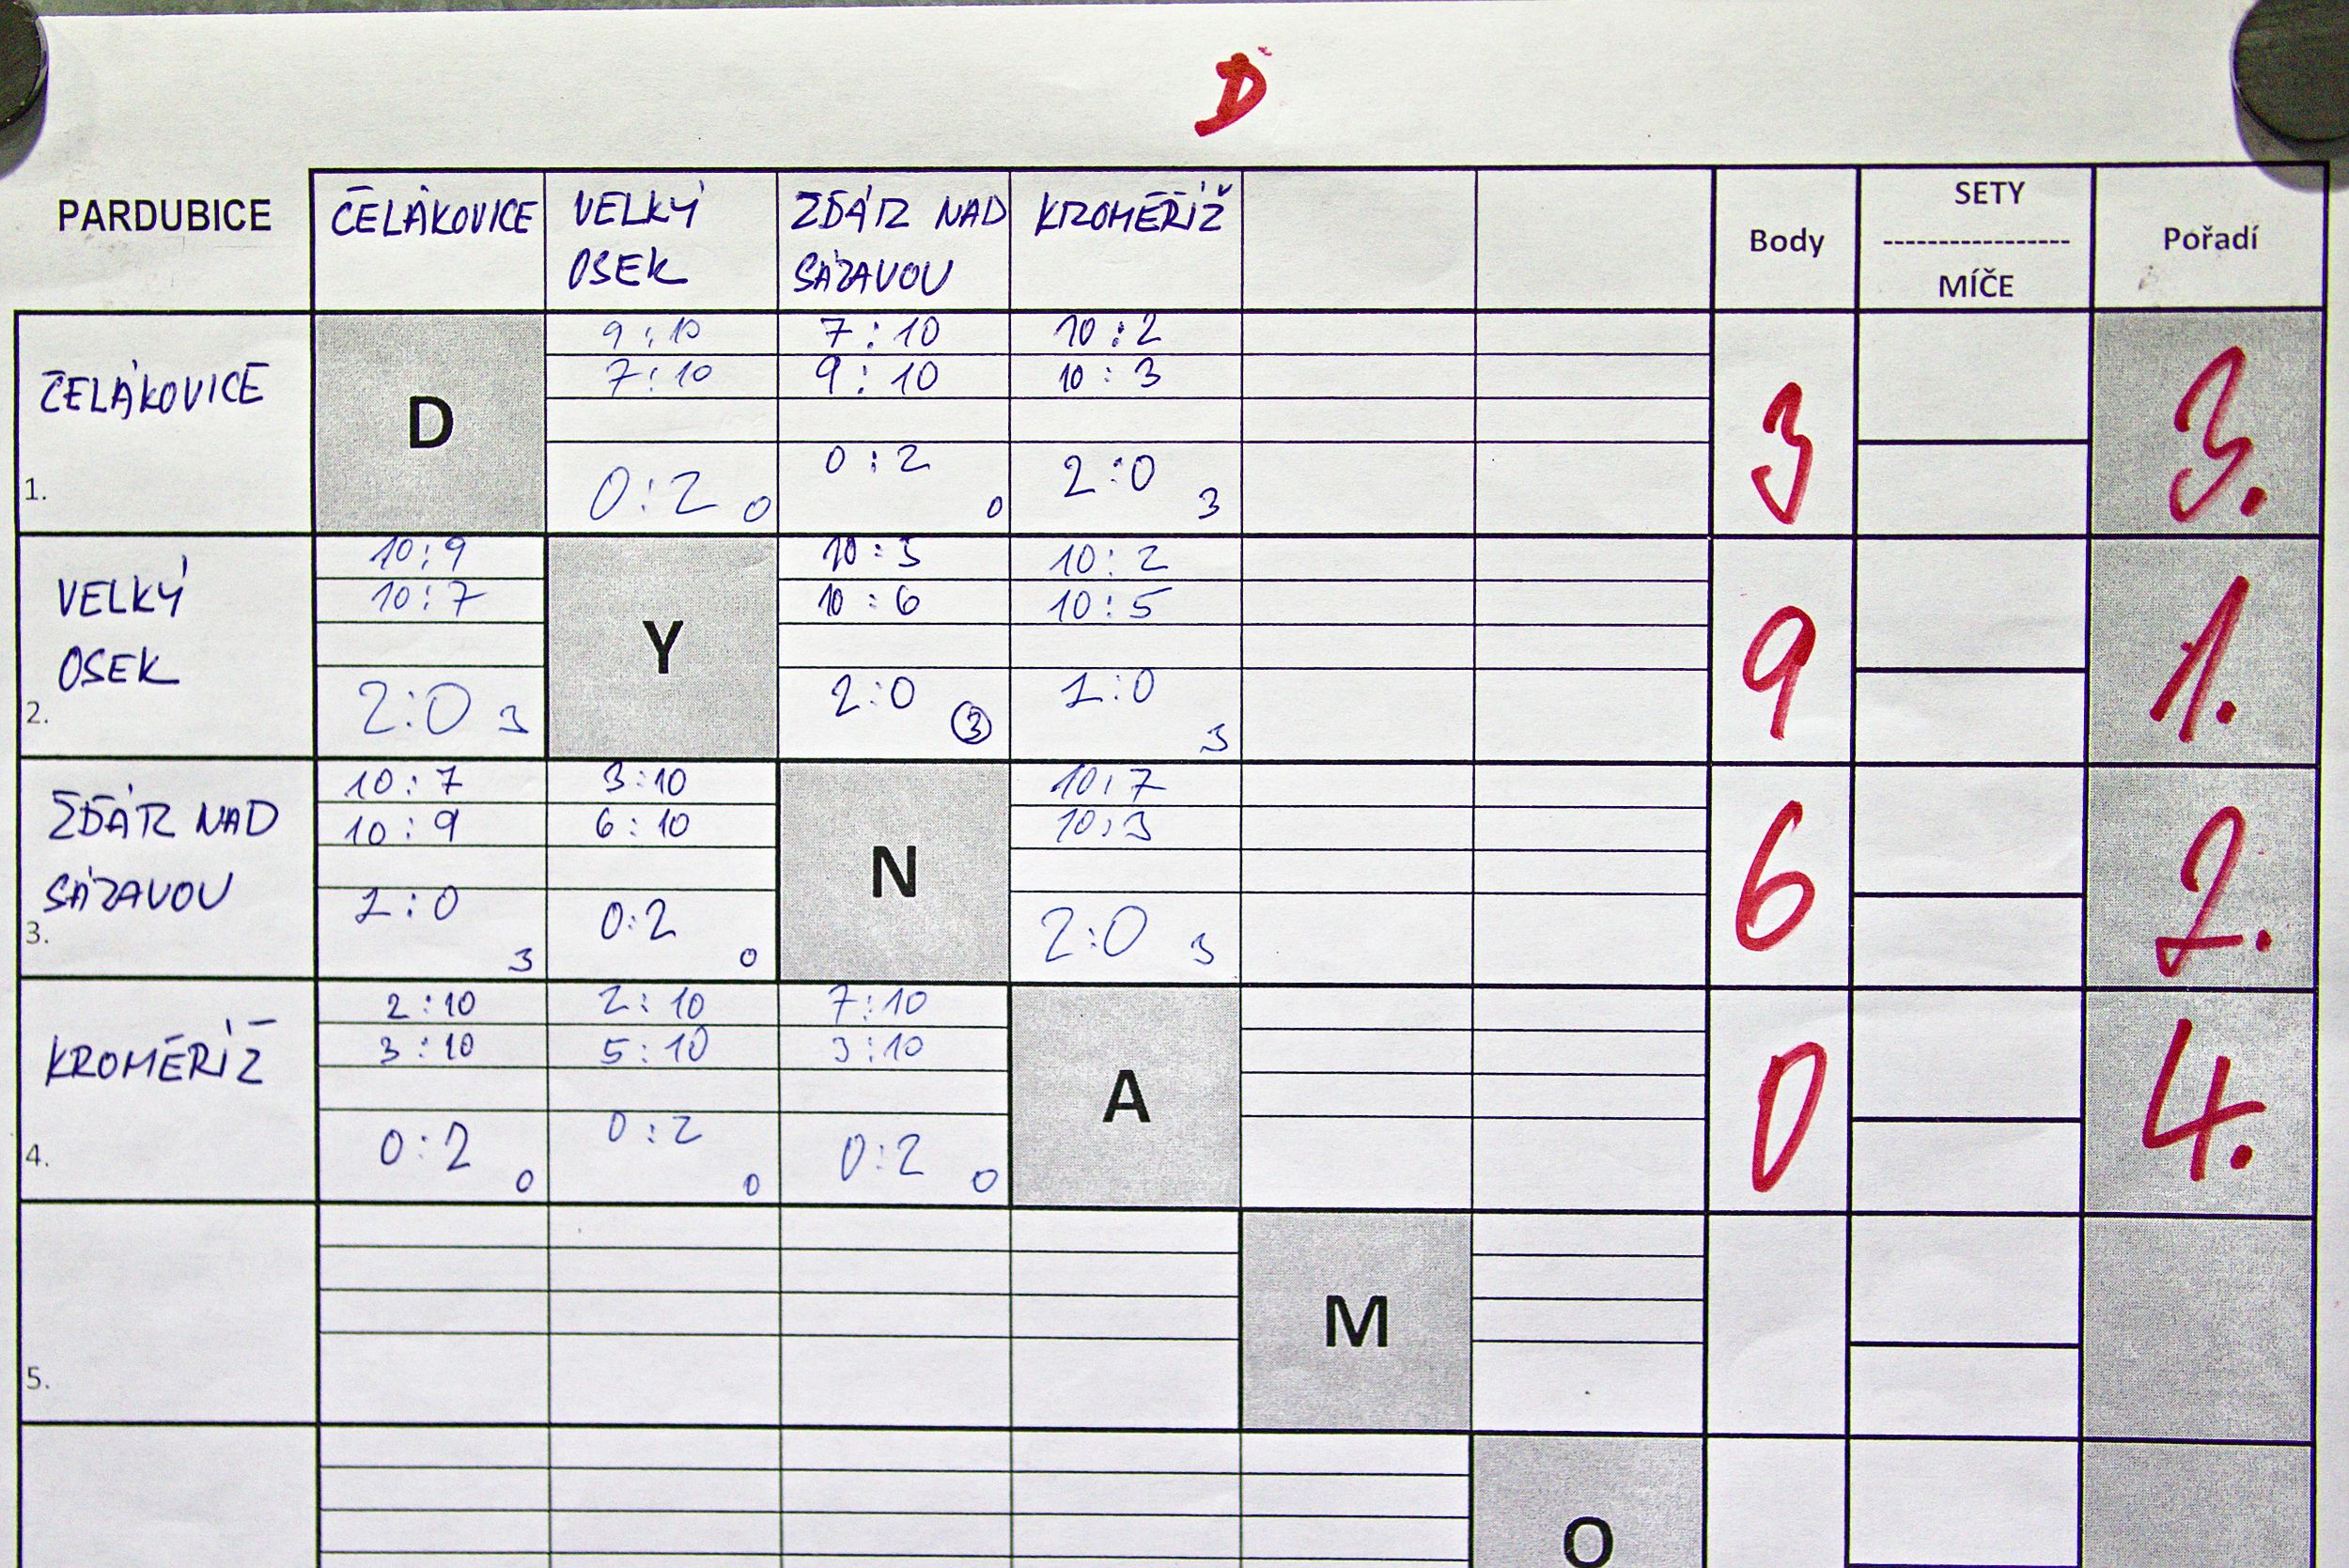 D
PARDUBICE
ČELÁKOVICE
VELKÝ
OSEK
ŽĎÁR NAD
SÁZAVOU
KROMĚŘÍŽ
Body
SETY
-----------------
MÍČE
Pořadí
ČELÁKOVICE
1.
D
9:10
7:10
0:2 0
7:10
9:10
0:2
0
10:2
10:3
2:0
3
3
3.
VELKÝ
OSEK
2.
10:9
10:7
2:0 3
Y
10:3
10:6
2:0
3
10:2
10:5
2:0
3
9
1.
ŽĎÁR NAD
SÁZAVOU
3.
10:7
10:9
2:0
3
3:10
6:10
0:2
0
N
10:7
10:3
2:0 3
6
2.
KROMĚŘÍŽ
4.
2:10
3:10
0:2
0
2:10
5:10
0:2
0
7:10
3:10
0:2 0
A
0
4.
5.
M
O